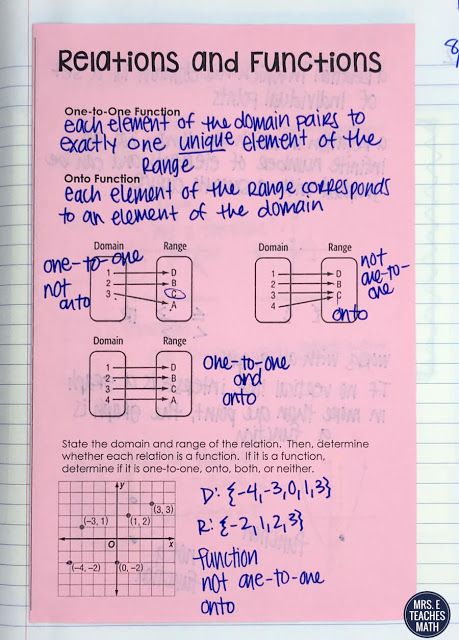 8/
Relations and Functions
One-to-One Function
each element of the domain pairs to
exactly one unique element of the
Range
Onto Function
each element of the Range corresponds
to an element of the domain
Domain Range
Domain Range
one-to-one
not
onto
1 D
2 B
3 C
A
1 D
2 B
3 C
4
not
one-to-
one
onto
Domain Range
1 D
2 B
3 C
4 A
one-to-one
and
onto
State the domain and range of the relation. Then, determine
whether each relation is a function. If it is a function,
determine if it is one-to-one, onto, both, or neither.
y
(3, 3)
(-3, 1)
(1, 2)
O
x
(-4, -2)
(0, -2)
D: {-4,-3,0,1,3}
R: {-2,1,2,3}
function
not one-to-one
onto
MRS. E
TEACHES
MATH